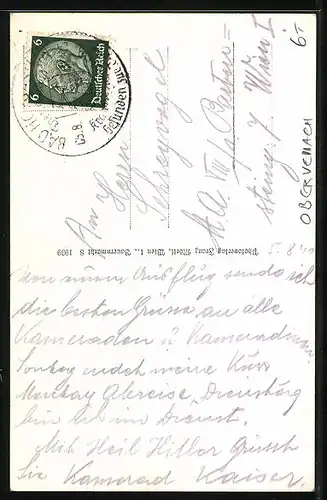 6
Deutsches Reich
6
BAD HO
gesunden
An Herrn
Schreyvogel
H. A. VIII/
Wien I
6.-
OBERVELLACH
5. 8. 40
Photoverlag Franz Mörtl, Wien I., Bauernmarkt 8 1939
Von einem Ausflug sende ich
die besten Grüsse an alle
Kameraden u Kameradinnen
Sontag endet meine Kur
Montag Abreise, Dienstag
bin ich im Dienst.
Mit Heil Hitler Grüsst
Sie Kamerad Kaiser.